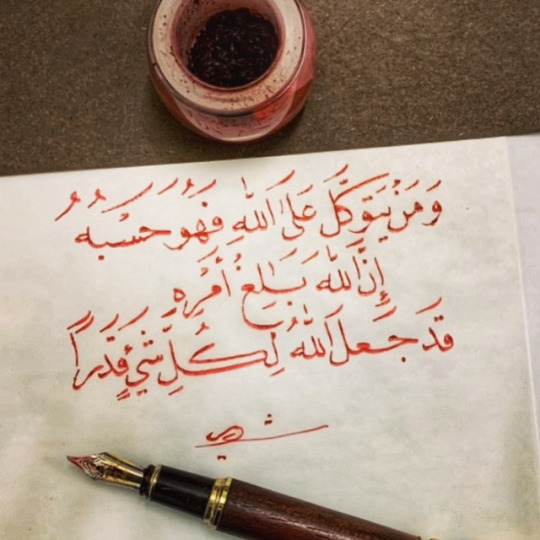 وَمَنْ يَتَوَكَّلْ عَلَى اللَّهِ فَهُوَ حَسْبُهُ
إِنَّ اللَّهَ بَالِغُ أَمْرِهِ
قَدْ جَعَلَ اللَّهُ لِكُلِّ شَيْءٍ قَدْرًا